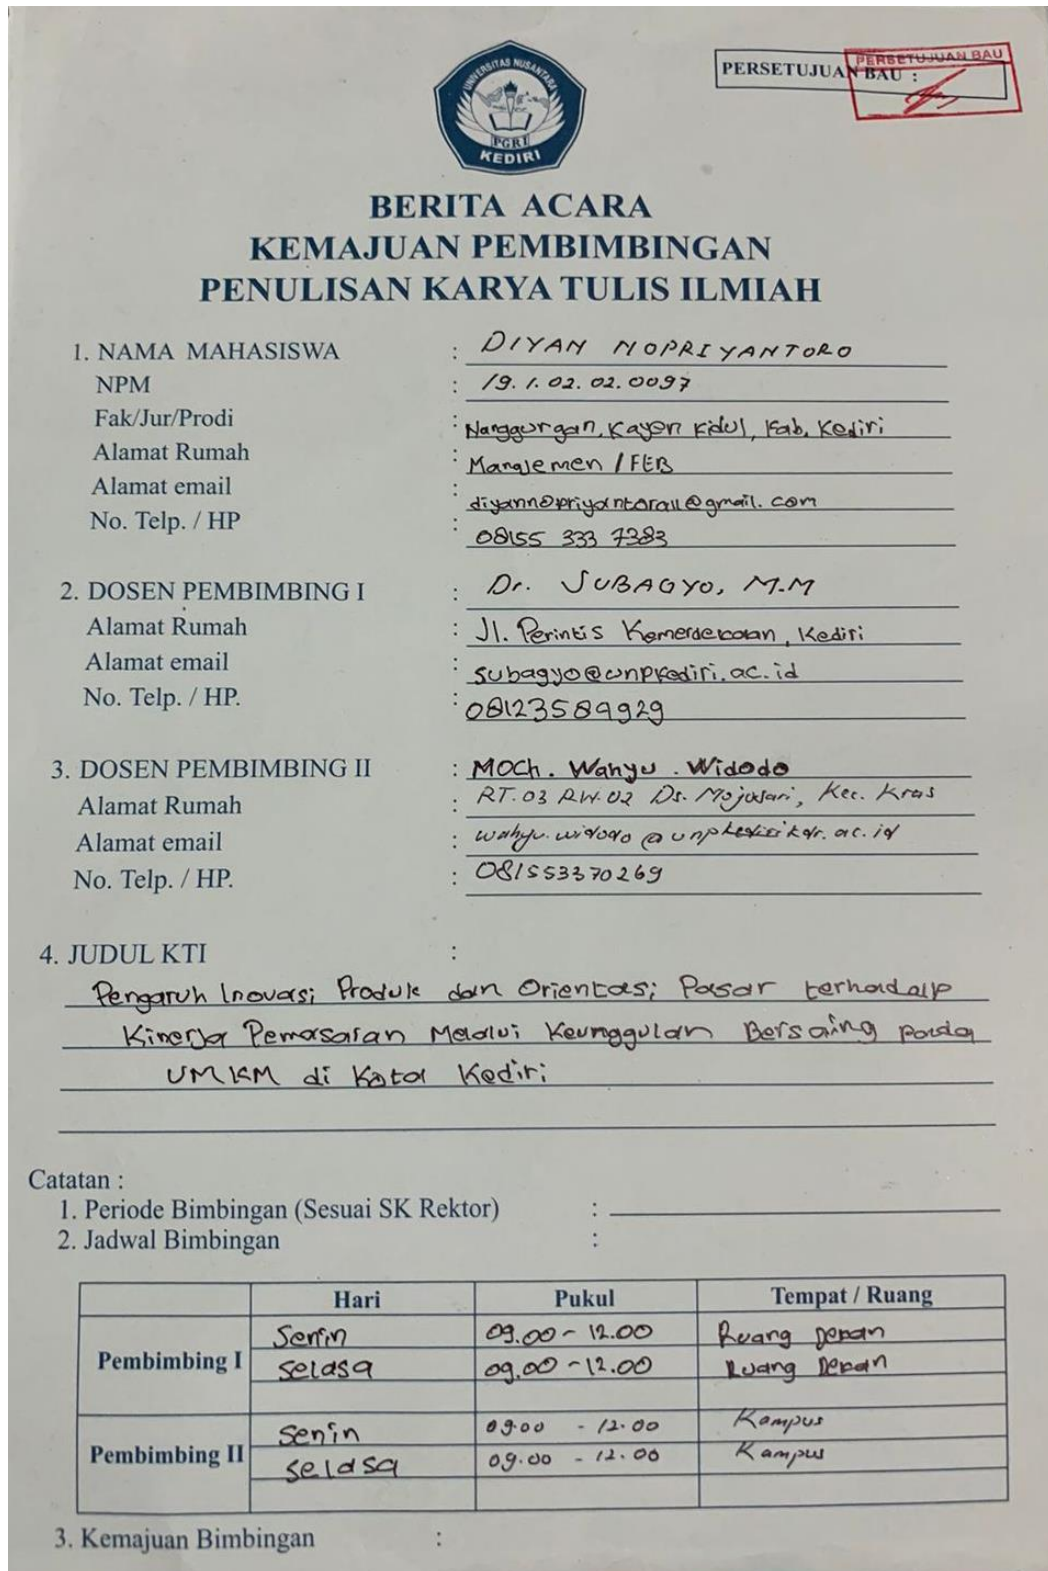 UNIVERSITAS NUSANTARA
PGRI
KEDIRI
PERSETUJUAN BAU :
PERSETUJUAN BAU
BERITA ACARA
KEMAJUAN PEMBIMBINGAN
PENULISAN KARYA TULIS ILMIAH
1. NAMA MAHASISWA : DIYAN NOPRIYANTORO
NPM : 19.1.02.02.0097
Fak/Jur/Prodi : Nanggungan, Kayen Kidul, Kab. Kediri
Alamat Rumah : Manajemen / FEB
Alamat email : @gmail.com
No. Telp. / HP : 08155 333 7383
2. DOSEN PEMBIMBING I : Dr. SUBAGYO, M.M
Alamat Rumah : Jl. Perintis Kemerdekaan, Kediri
Alamat email : subagyo@unpkediri.ac.id
No. Telp. / HP. : 08123589929
3. DOSEN PEMBIMBING II : MOCh. Wahyu. Widodo
Alamat Rumah : RT.03 RW.02 Ds. Mojosari, Kec. Kras
Alamat email : wahyu.widodo@unpkdr.ac.id
No. Telp. / HP. : 081553370269
4. JUDUL KTI :
Pengaruh Inovasi Produk dan Orientasi Pasar terhadap
Kinerja Pemasaran Melalui Keunggulan Bersaing pada
UMKM di Kota Kediri
Catatan :
1. Periode Bimbingan (Sesuai SK Rektor) :
2. Jadwal Bimbingan :
Hari Pukul Tempat / Ruang
Pembimbing I
Senin 09.00 - 12.00 Ruang Depan
Selasa 09.00 - 12.00 Ruang Depan
Pembimbing II
Senin 09.00 - 12.00 Kampus
Selasa 09.00 - 12.00 Kampus
3. Kemajuan Bimbingan :